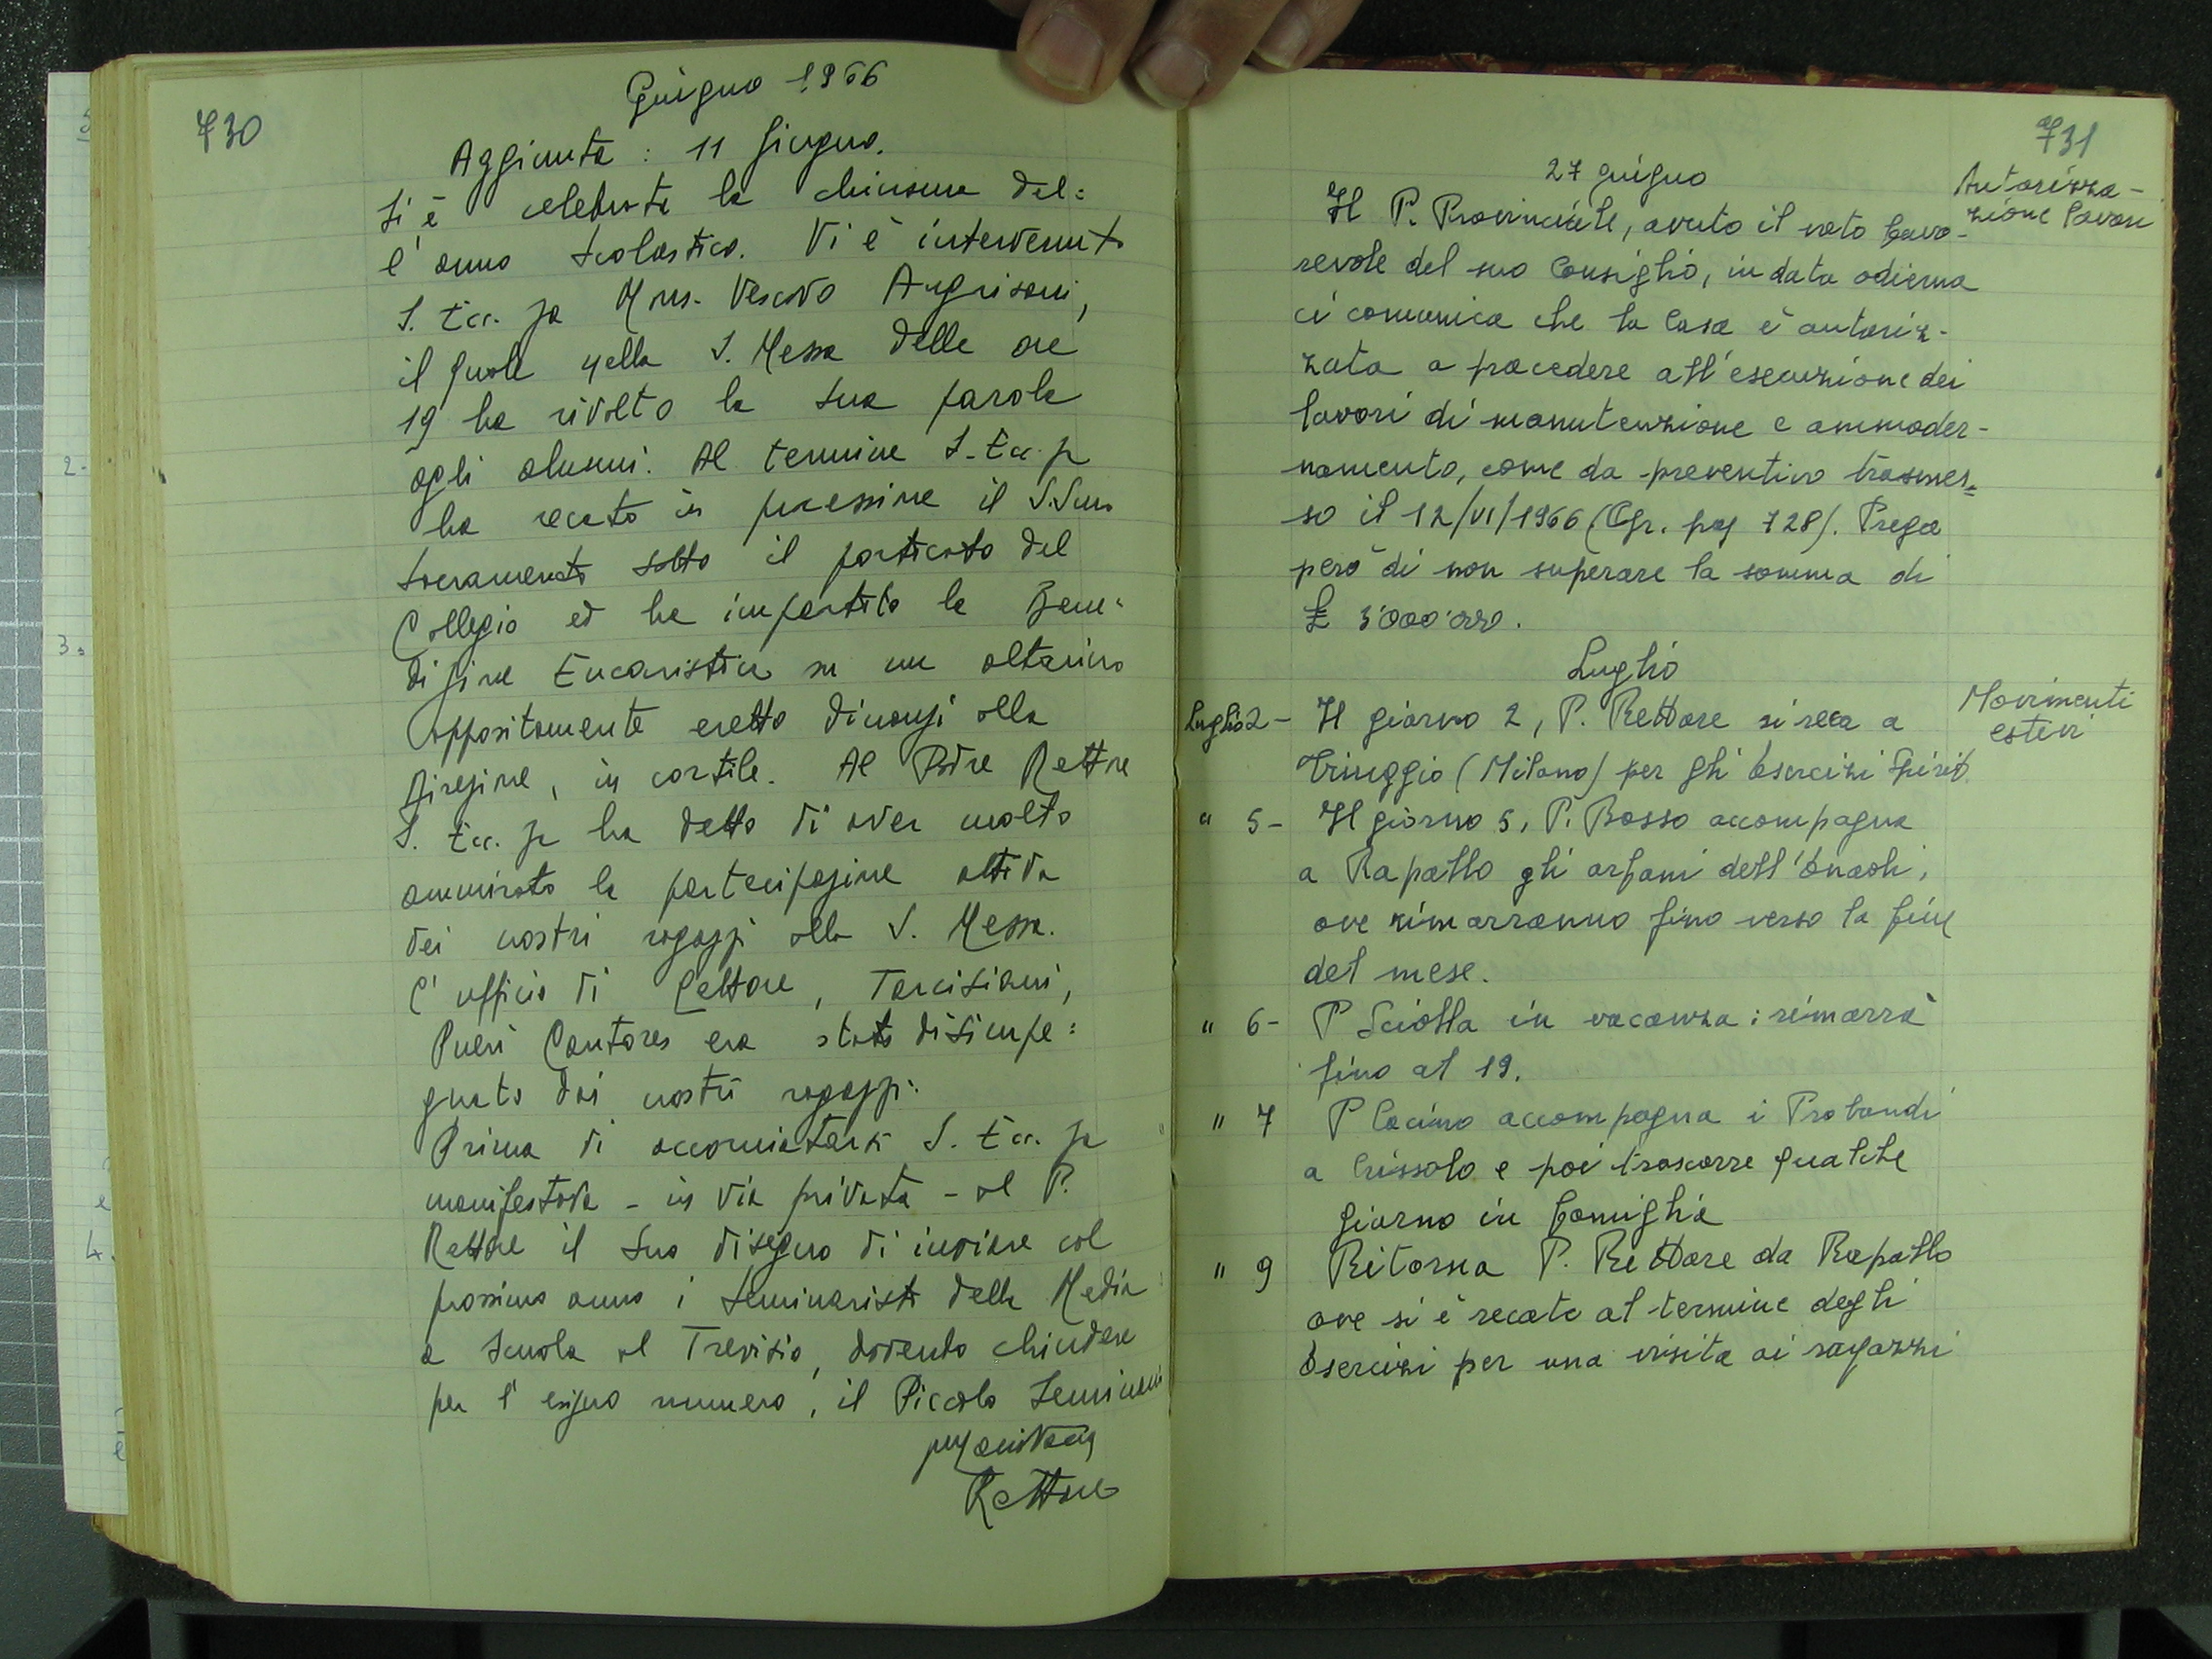 730
Giugno 1966
Aggiunta : 11 Giugno.
Si è celebrata la chiusura del=
l'anno scolastico. Vi è intervenuto
S. Ecc. za Mons. Vescovo Angrisani,
il quale nella S. Messa delle ore
19 ha rivolto la sua parola
agli alunni. Al termine S. Ecc. za
ha recato in processione il S.Smo
Sacramento sotto il porticato del
Collegio ed ha impartito la Bene=
dizione Eucaristica su un altarino
appositamente eretto dinanzi alla
Direzione, in cortile. Al Padre Rettore
S. Ecc. za ha detto di aver molto
ammirato la partecipazione attiva
dei nostri ragazzi alla S. Messa.
L'ufficio di Lettore, Tarcisiani,
Pueri Cantores era stato disimpe=
gnato dai nostri ragazzi.
Prima di accomiatarsi S. Ecc. za
manifestava - in via privata - al P.
Rettore il suo disegno di inviare col
prossimo anno i Seminaristi della Media
a scuola al Trevisio, dovendo chiudere
per l'esiguo numero, il Piccolo
Rettore
731
27 giugno
Autorizza-
zione lavori
Il P. Provinciale, avuto il voto favo-
revole del suo Consiglio, in data odierna
ci comunica che la Casa è autoriz-
zata a procedere all'esecuzione dei
lavori di manutenzione e ammoder-
namento, come da preventivo trasmes=
so il 12/VI/1966 (Cfr. pag 728). Prega
però di non superare la somma di
£ 3'000'000.
Luglio
Movimenti
estivi
Luglio 2 - Il giorno 2, P. Rettore si reca a
Triuggio (Milano) per gli Esercizi Spirit.
" 5 - Il giorno 5, P. Bosso accompagna
a Rapallo gli orfani dell'Enaoli,
ove rimarranno fino verso la fine
del mese.
" 6 - P Sciolla in vacanza: rimarrà
fino al 19.
" 7 P Cacino accompagna i Probandi
a Crissolo e poi trascorre qualche
giorno in famiglia
" 9 Ritorna P. Rettore da Rapallo
ove si è recato al termine degli
Esercizi per una visita ai ragazzi